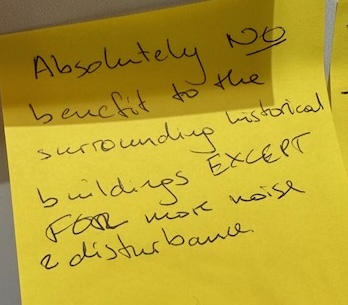 Absolutely NO
benefit to the
surrounding historical
buildings EXCEPT
FOR more noise
& disturbance.